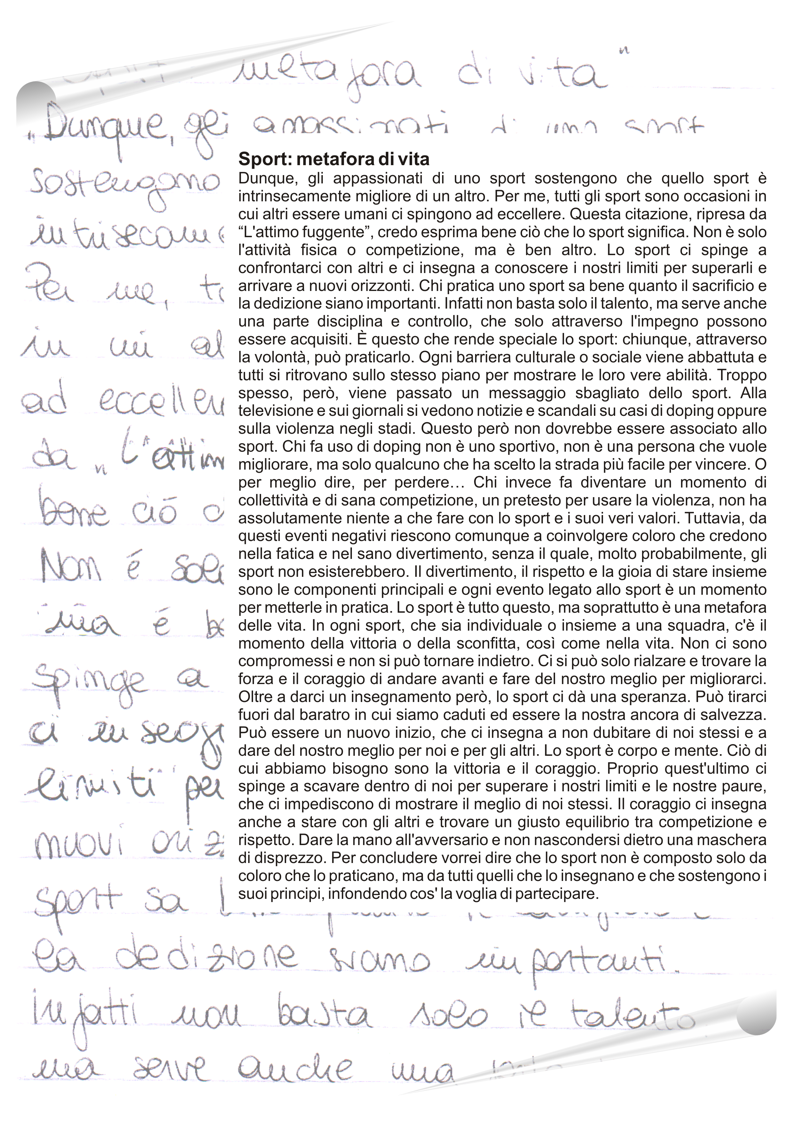 metafora di vita"
"Dunque, gli appassionati di uno sport
sostengono
intrisecame
Per me, tu
in cui al
ad eccellen
da "L'attim
bene ciò c
Non é solo
ma é be
spinge a
ci insegn
limiti per
nuovi oriz
sport sa
la dedizione siano importanti.
Infatti non basta solo il talento
ma serve anche una
Sport: metafora di vita
Dunque, gli appassionati di uno sport sostengono che quello sport è
intrinsecamente migliore di un altro. Per me, tutti gli sport sono occasioni in
cui altri essere umani ci spingono ad eccellere. Questa citazione, ripresa da
“L'attimo fuggente”, credo esprima bene ciò che lo sport significa. Non è solo
l'attività fisica o competizione, ma è ben altro. Lo sport ci spinge a
confrontarci con altri e ci insegna a conoscere i nostri limiti per superarli e
arrivare a nuovi orizzonti. Chi pratica uno sport sa bene quanto il sacrificio e
la dedizione siano importanti. Infatti non basta solo il talento, ma serve anche
una parte disciplina e controllo, che solo attraverso l'impegno possono
essere acquisiti. È questo che rende speciale lo sport: chiunque, attraverso
la volontà, può praticarlo. Ogni barriera culturale o sociale viene abbattuta e
tutti si ritrovano sullo stesso piano per mostrare le loro vere abilità. Troppo
spesso, però, viene passato un messaggio sbagliato dello sport. Alla
televisione e sui giornali si vedono notizie e scandali su casi di doping oppure
sulla violenza negli stadi. Questo però non dovrebbe essere associato allo
sport. Chi fa uso di doping non è uno sportivo, non è una persona che vuole
migliorare, ma solo qualcuno che ha scelto la strada più facile per vincere. O
per meglio dire, per perdere… Chi invece fa diventare un momento di
collettività e di sana competizione, un pretesto per usare la violenza, non ha
assolutamente niente a che fare con lo sport e i suoi veri valori. Tuttavia, da
questi eventi negativi riescono comunque a coinvolgere coloro che credono
nella fatica e nel sano divertimento, senza il quale, molto probabilmente, gli
sport non esisterebbero. Il divertimento, il rispetto e la gioia di stare insieme
sono le componenti principali e ogni evento legato allo sport è un momento
per metterle in pratica. Lo sport è tutto questo, ma soprattutto è una metafora
delle vita. In ogni sport, che sia individuale o insieme a una squadra, c'è il
momento della vittoria o della sconfitta, così come nella vita. Non ci sono
compromessi e non si può tornare indietro. Ci si può solo rialzare e trovare la
forza e il coraggio di andare avanti e fare del nostro meglio per migliorarci.
Oltre a darci un insegnamento però, lo sport ci dà una speranza. Può tirarci
fuori dal baratro in cui siamo caduti ed essere la nostra ancora di salvezza.
Può essere un nuovo inizio, che ci insegna a non dubitare di noi stessi e a
dare del nostro meglio per noi e per gli altri. Lo sport è corpo e mente. Ciò di
cui abbiamo bisogno sono la vittoria e il coraggio. Proprio quest'ultimo ci
spinge a scavare dentro di noi per superare i nostri limiti e le nostre paure,
che ci impediscono di mostrare il meglio di noi stessi. Il coraggio ci insegna
anche a stare con gli altri e trovare un giusto equilibrio tra competizione e
rispetto. Dare la mano all'avversario e non nascondersi dietro una maschera
di disprezzo. Per concludere vorrei dire che lo sport non è composto solo da
coloro che lo praticano, ma da tutti quelli che lo insegnano e che sostengono i
suoi principi, infondendo cos' la voglia di partecipare.